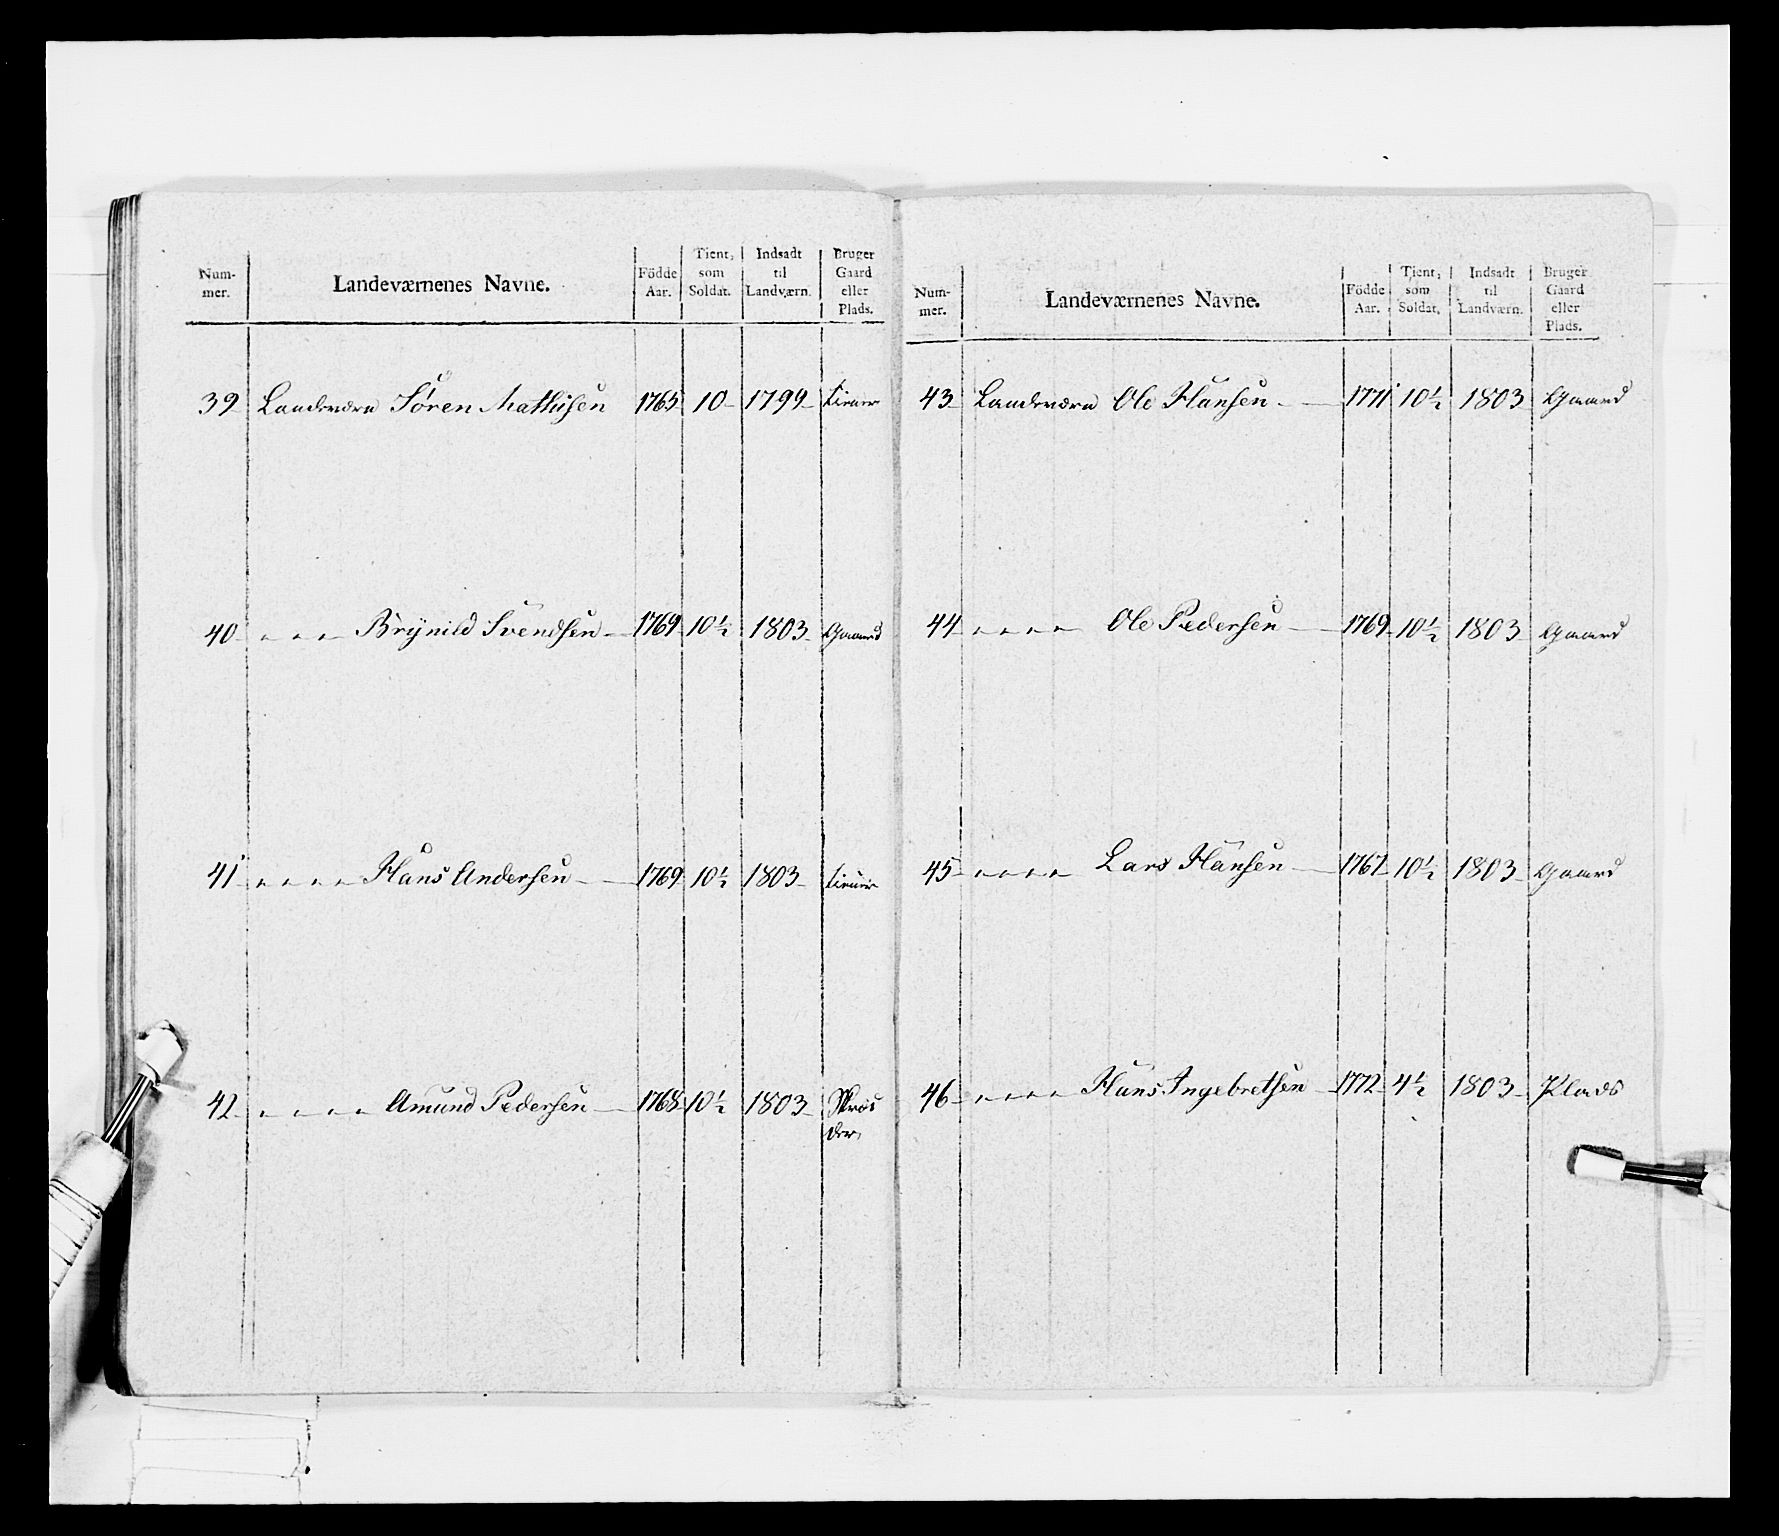 Num-
mer.
Landeværnenes Navne.
Födde
Aar.
Tient,
som
Soldat.
Indsadt
til
Landværn.
Bruger
Gaard
eller
Plads.
39 Landeværn Sören Mathisen 1765 10 1799 tiener
40 " " " " Brÿnild Svendsen 1769 10½ 1803 Gaard
41 " " " " Hans Andersen 1769 10½ 1803 tiener
42 " " " " Amund Pedersen 1768 10½ 1803
Num-
mer.
Landeværnenes Navne.
Födde
Aar.
Tient,
som
Soldat.
Indsadt
til
Landværn.
Bruger
Gaard
eller
Plads.
43 Landeværn Ole Hansen 1771 10½ 1803 Gaard
44 " " " " Ole Pedersen 1769 10½ 1803 Gaard
45 " " " " Lars Hansen 1767 10½ 1803 Gaard
46 " " " " Hans Ingebretsen 1772 4½ 1803 Plads